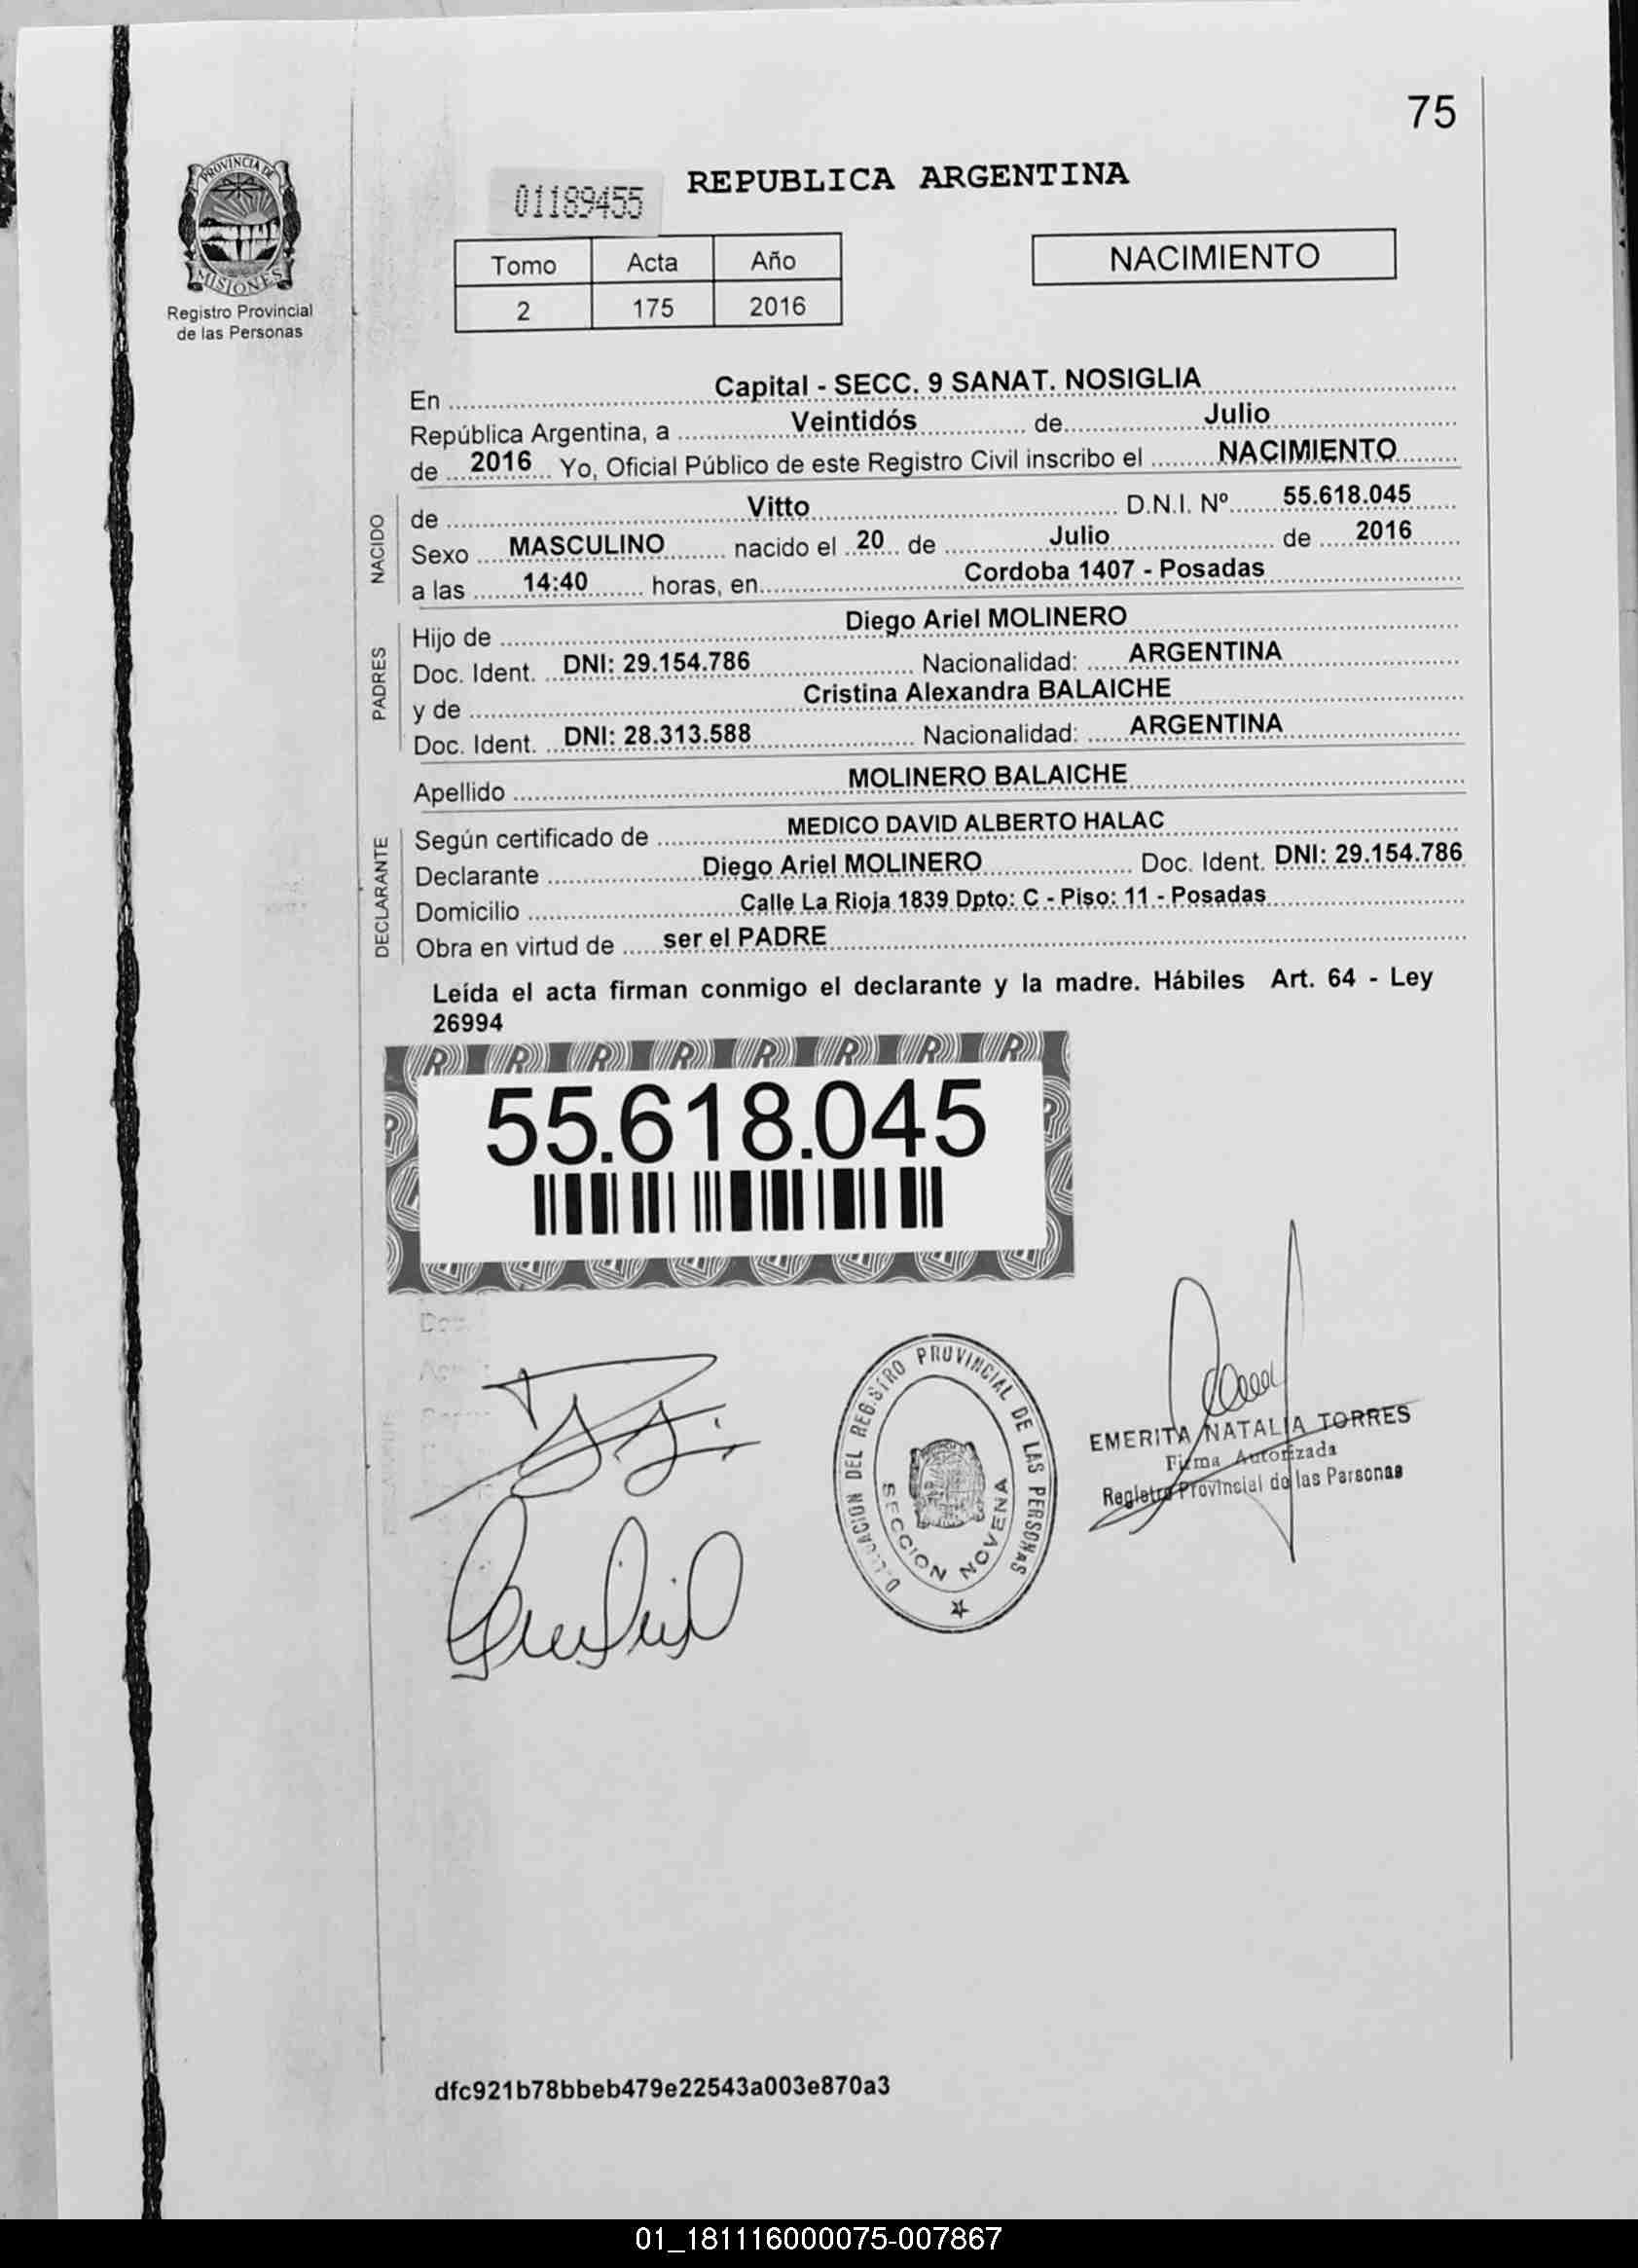 75
PROVINCIA DE
MISIONES
Registro Provincial
de las Personas
01189455
REPUBLICA ARGENTINA
Tomo Acta Año
2 175 2016
NACIMIENTO
En Capital - SECC. 9 SANAT. NOSIGLIA
República Argentina, a Veintidós de Julio
de 2016 Yo, Oficial Público de este Registro Civil inscribo el NACIMIENTO
NACIDO
de Vitto D.N.I. Nº 55.618.045
Sexo MASCULINO nacido el 20 de Julio de 2016
a las 14:40 horas, en Cordoba 1407 - Posadas
PADRES
Hijo de Diego Ariel MOLINERO
Doc. Ident. DNI: 29.154.786 Nacionalidad: ARGENTINA
y de Cristina Alexandra BALAICHE
Doc. Ident. DNI: 28.313.588 Nacionalidad: ARGENTINA
Apellido MOLINERO BALAICHE
DECLARANTE
Según certificado de MEDICO DAVID ALBERTO HALAC
Declarante Diego Ariel MOLINERO Doc. Ident. DNI: 29.154.786
Domicilio Calle La Rioja 1839 Dpto: C - Piso: 11 - Posadas
Obra en virtud de ser el PADRE
Leída el acta firman conmigo el declarante y la madre. Hábiles Art. 64 - Ley
26994
55.618.045
DELEGACION DEL REGISTRO PROVINCIAL DE LAS PERSONAS
SECCION NOVENA
EMERITA NATALIA TORRES
Firma Autorizada
Registro Provincial de las Personas
dfc921b78bbeb479e22543a003e870a3
01_181116000075-007867